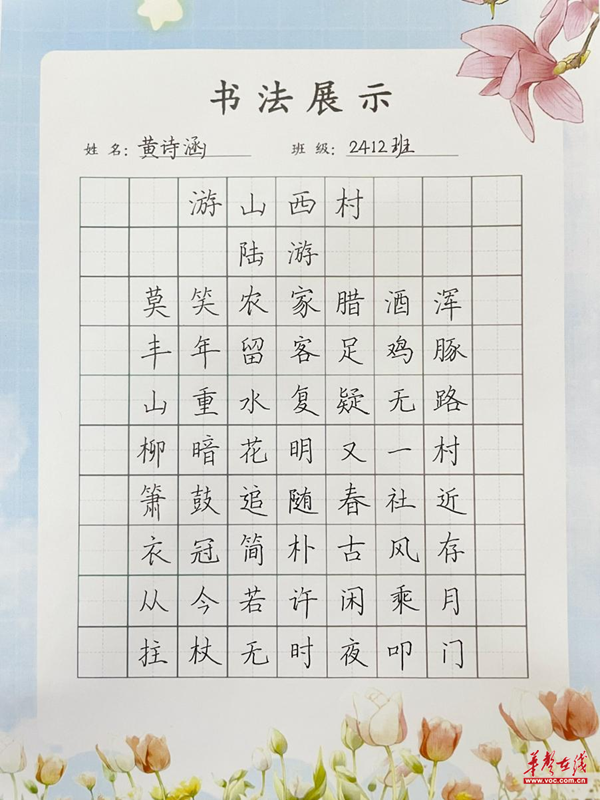 书法展示
姓名：黄诗涵 班级：2412班
游山西村
陆游
莫笑农家腊酒浑
丰年留客足鸡豚
山重水复疑无路
柳暗花明又一村
箫鼓追随春社近
衣冠简朴古风存
从今若许闲乘月
拄杖无时夜叩门
华声在线
www.voc.com.cn